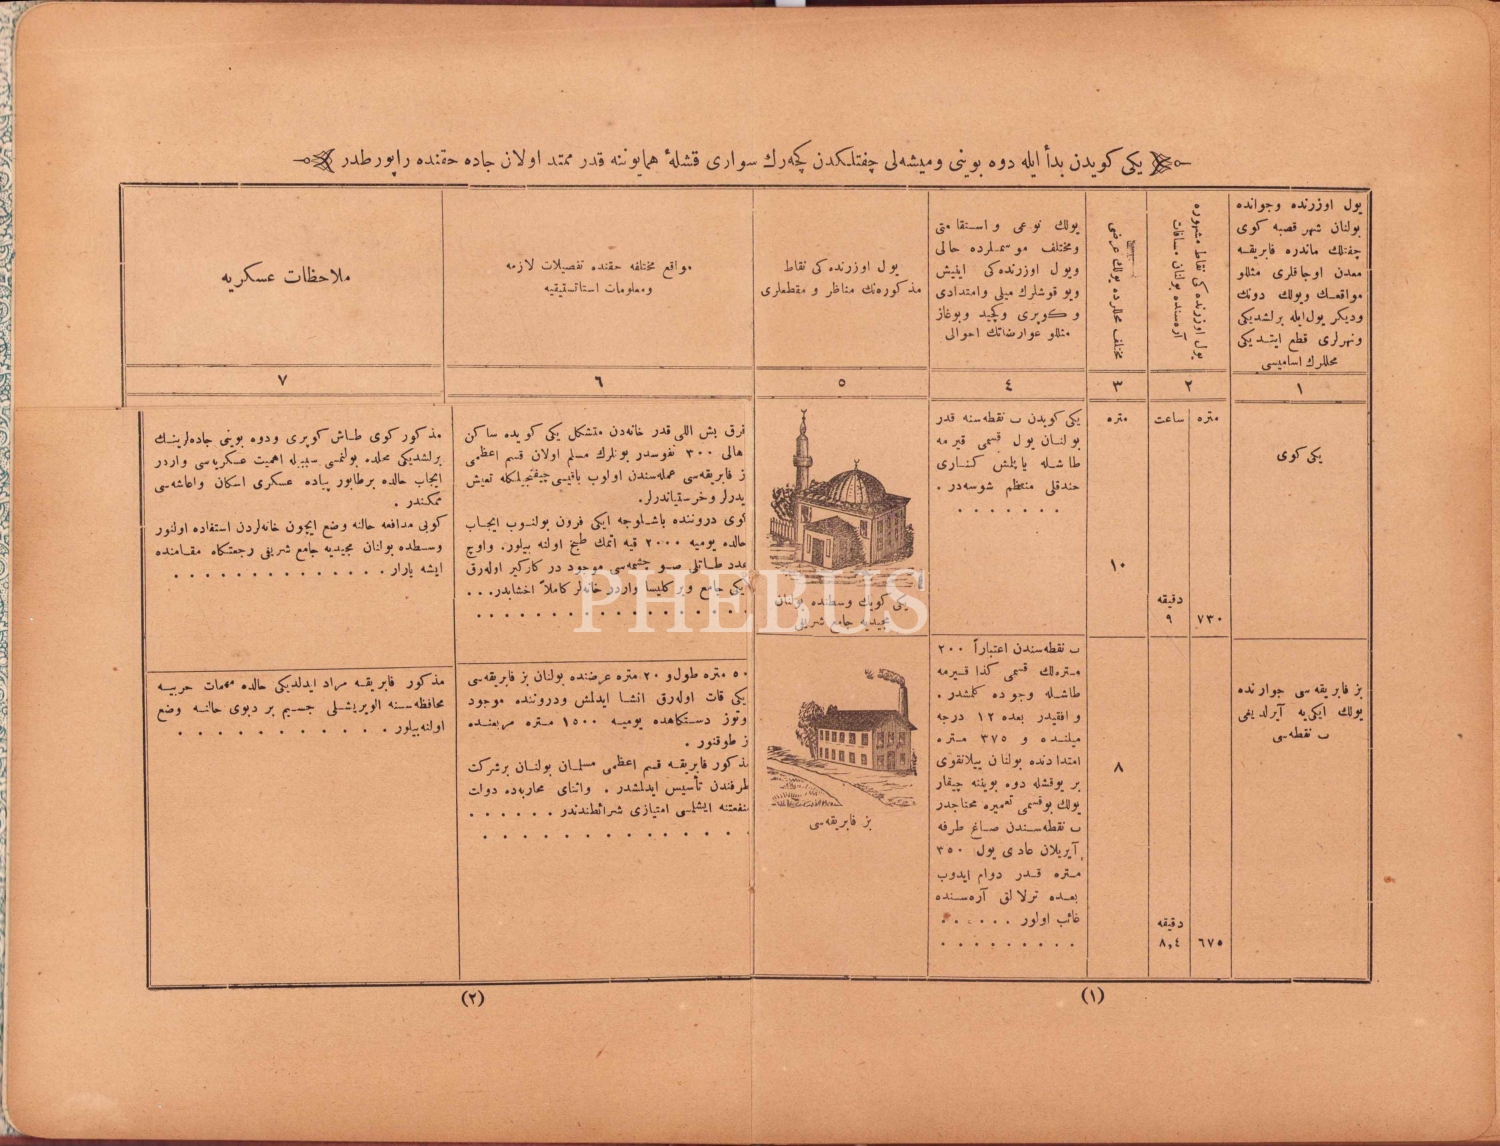 یکی کویدن بدأ ایله دوه بوینی ومیشه‌لی چفتلکدن کچه‌رك سواری قشلۀ همایوننه قدر ممتد اولان جاده حقنده راپورطدر
یول اوزرنده وجوانده
بولنان شهر قصبه کوی
چفتلك ماندره فابریقه
معدن اوجاقلری مثللو
مواقعك ویولك دونك
ودیکر یول‌ایله برلشدیکی
ونهرلری قطع ایتدیکی
محللرك اسامیسی
یول اوزرنده کی نقاط مشهوره
آره‌سنده بولنان مسافات
مختلف محللرده یولك عرضی
یولك نوعی و استقامتی
ومختلف موسملرده حالی
ویول اوزرنده‌کی اینیش
ویوقوشلرك میلی وامتدادی
و کوپری وکچید وبوغاز
مثللو عوارضاتك احوالی
یول اوزرنده‌کی نقاط
مذکوره‌نك مناظر و مقطعلری
مواقع مختلفه حقنده تفصیلات لازمه
ومعلومات استاتستیقیه
ملاحظات عسکریه
١
٢
٣
٤
٥
٦
٧
یکی کوی
متره
ساعت
٧٣٠
دقیقه
٩
متره
١٠
یکی کویدن ب نقطه‌سنه قدر
بولنان یول قسمی قیرمه
طاشله یاپلش کناری
خندقلی منتظم شوسه‌در .
یکی کویك وسطنده بولنان
مجیدیه جامع شریفی
فرق بش اللی قدر خانه‌دن متشکل یکی کویده ساکن
هالی ٣٠٠ نفوسدر بونلرك مسلم اولان قسم اعظمی
ز فابریقه‌سی عمله‌سندن اولوب باقیسی چیفتجیلکله تعیش
یدرلر وخرستیاندرلر.
کوی دروننده باشلوجه ایکی فرون بولنوب ایجاب
حالده یومیه ٢٠٠٠ قیه اتمك طبخ اولنه بیلور. واوچ
عدد طاتلی صو چشمه‌سی موجود در کارکیر اوله‌رق
یکی جامع وبر کلیسا واردر خانه‌لر کاملاً اخشابدر...
مذکور کوی طاش کوپری ودوه بوینی جاده‌لرینك
برلشدیکی محلده بولنمسی سببیله اهمیت عسکریه‌سی واردر
ایجاب حالده برطابور پیاده عسکری اسکان واعاشه‌سی
ممکندر .
کویی مدافعه حالنه وضع ایچون خانه‌لردن استفاده اولنور
وسطده بولنان مجیدیه جامع شریفی رجعتکاه مقامنده
ایشه یارار.
بز فابریقه‌سی جوارنده
یولك ایکی‌یه آیرلدیغی
ب نقطه‌سی
٦٧٥
دقیقه
٨,٤
٨
ب نقطه‌سندن اعتباراً ٢٠٠
متره‌لك قسمی کذا قیرمه
طاشله وجوده کلمشدر .
و افقیدر بعده ١٢ درجه
میلنده و ٣٧٥ متره
امتدادنده بولنان ییلانقوی
بر یوقشله دوه بویننه چیقار
یولك بوقسمی تعمیره محتاجدر
ب نقطه‌سندن صاغ طرفه
آیریلان عادی یول ٣٥٠
متره قدر دوام ایدوب
بعده ترلالق آره‌سنده
غائب اولور
بز فابریقه‌سی
٥٠ متره طول و ٢٠ متره عرضنده بولنان بز فابریقه‌سی
یکی قات اوله‌رق انشا ایدلمش ودروننده موجود
وتوز دستکاهده یومیه ١٥٠٠ متره مربعنده
ز طوقنور .
مذکور فابریقه قسم اعظمی مسلمان بولنان برشرکت
طرفندن تأسیس ایدلمشدر . واثنای محاربه‌ده دولت
منفعتنه ایشلمسی امتیازی شرائطندندر
مذکور فابریقه مراد ایدلدیکی حالده مهمات حربیه
محافظه‌سنه الویریشلی جسیم بر دبوی حالنه وضع
اولنه‌بیلور
(١)
(٢)
PHEBUS